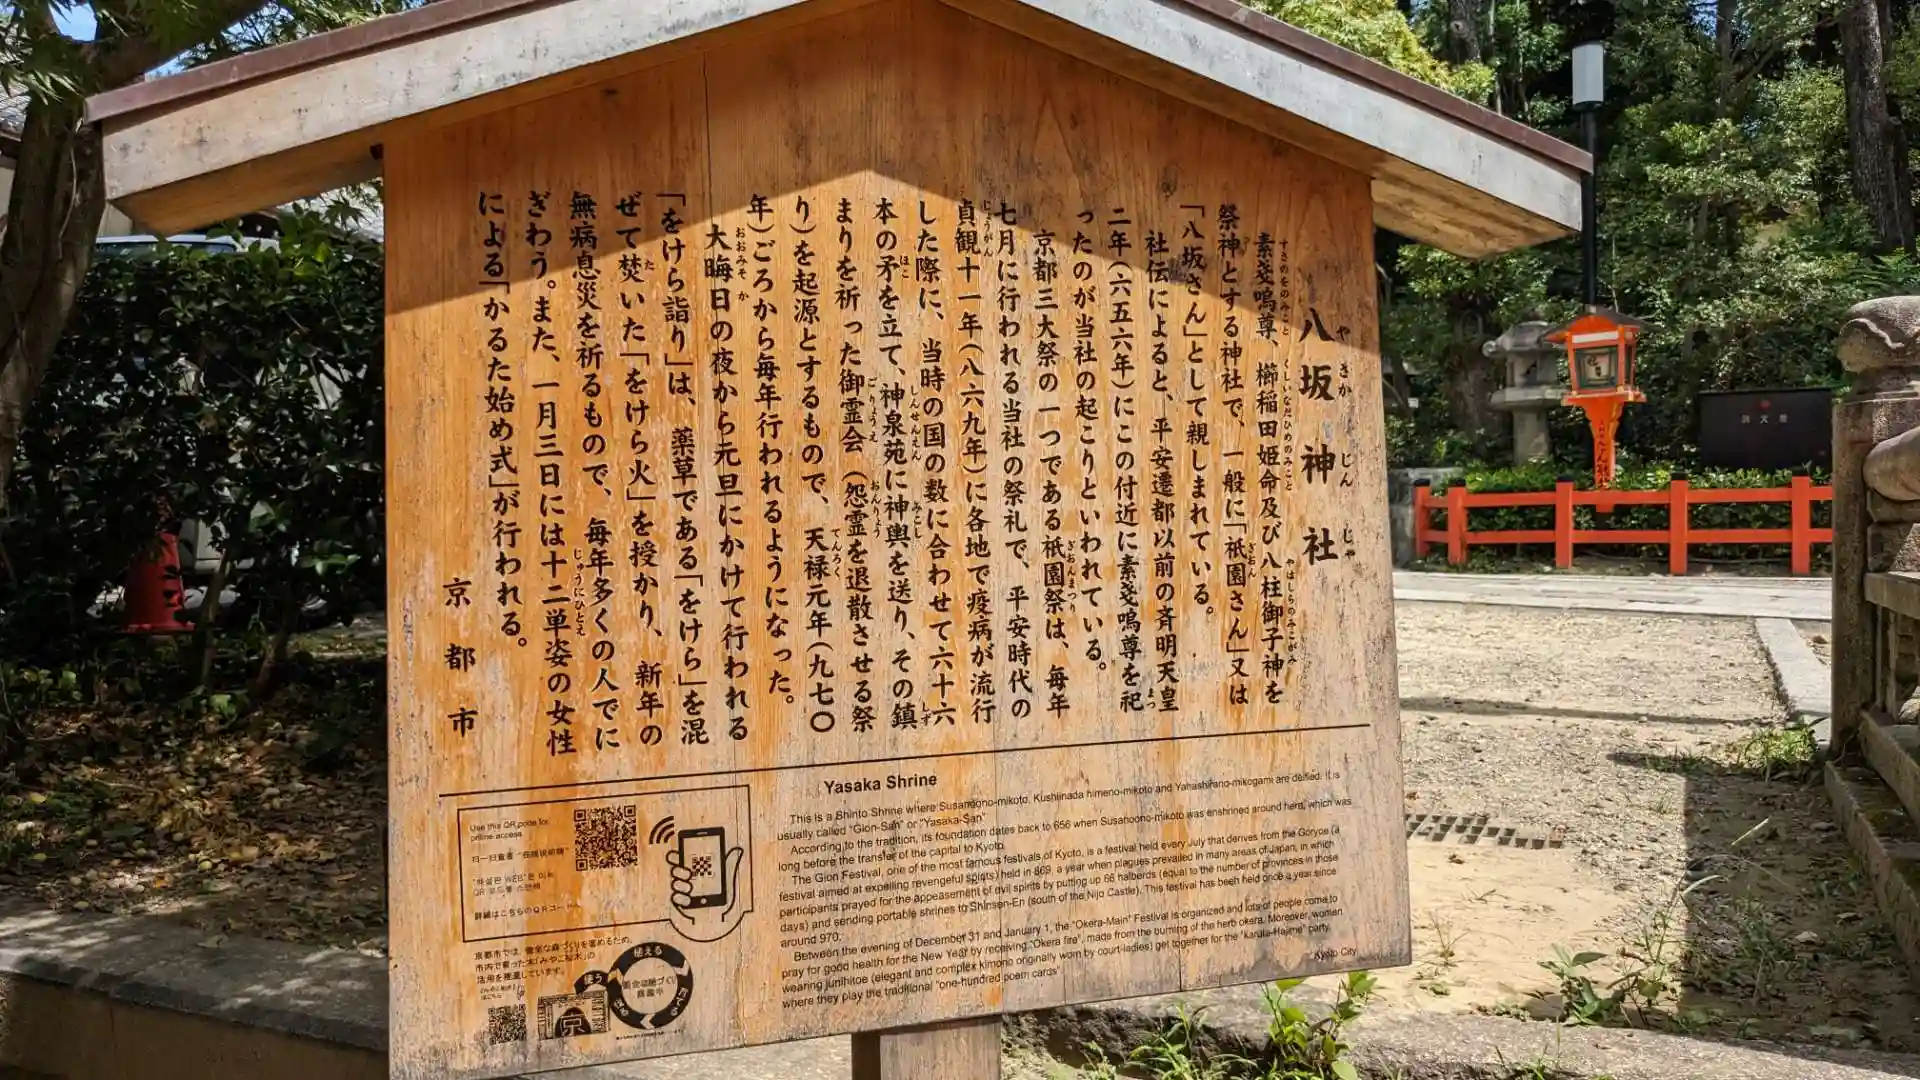 八坂神社
やさかじんじゃ
素戔嗚尊、櫛稲田姫命及び八柱御子神を
すさのをのみこと くしいなだひめのみこと やはしらのみこがみ
祭神とする神社で、一般に「祇園さん」又は
ぎおん
「八坂さん」として親しまれている。
社伝によると、平安遷都以前の斉明天皇
二年(六五六年)にこの付近に素戔嗚尊を祀
まつ
ったのが当社の起こりといわれている。
京都三大祭の一つである祇園祭は、毎年
ぎおんまつり
七月に行われる当社の祭礼で、平安時代の
貞観十一年(八六九年)に各地で疫病が流行
じょうがん
した際に、当時の国の数に合わせて六十六
本の矛を立て、神泉苑に神輿を送り、その鎮
ほこ しんせんえん みこし しず
まりを祈った御霊会(怨霊を退散させる祭
ごりょうえ おんりょう
り)を起源とするもので、天禄元年(九七〇
てんろく
年)ごろから毎年行われるようになった。
大晦日の夜から元旦にかけて行われる
おおみそか
「をけら詣り」は、薬草である「をけら」を混
ぜて焚いた「をけら火」を授かり、新年の
た
無病息災を祈るもので、毎年多くの人でに
ぎわう。また、一月三日には十二単姿の女性
じゅうにひとえ
による「かるた始め式」が行われる。
京都市
Yasaka Shrine
This is a Shinto Shrine where Susanoono-mikoto, Kushiinada himeno-mikoto and Yahashirano-mikogami are deified. It is
usually called "Gion-San" or "Yasaka-San"
According to the tradition, its foundation dates back to 656 when Susanoono-mikoto was enshrined around here, which was
long before the transfer of the capital to Kyoto.
The Gion Festival, one of the most famous festivals of Kyoto, is a festival held every July that derives from the Goryoe (a
festival aimed at expelling revengeful spirits) held in 869, a year when plagues prevailed in many areas of Japan, in which
participants prayed for the appeasement of evil spirits by putting up 66 halberds (equal to the number of provinces in those
days) and sending portable shrines to Shinsen-En (south of the Nijo Castle). This festival has been held once a year since
around 970.
Between the evening of December 31 and January 1, the "Okera-Mairi" Festival is organized and lots of people come to
pray for good health for the New Year by receiving "Okera fire", made from the burning of the herb okera. Moreover, women
wearing junihitoe (elegant and complex kimono originally worn by court-ladies) get together for the "karuta-Hajime" party,
where they play the traditional "one-hundred poem cards"
Kyoto City
Use this QR code for
online access.
詳細はこちらのQRコードへ
京都市では、健全な森づくりを進めるため、
市内で育った木「みやこ杣木」の
活用を推進しています。
植える
育てる